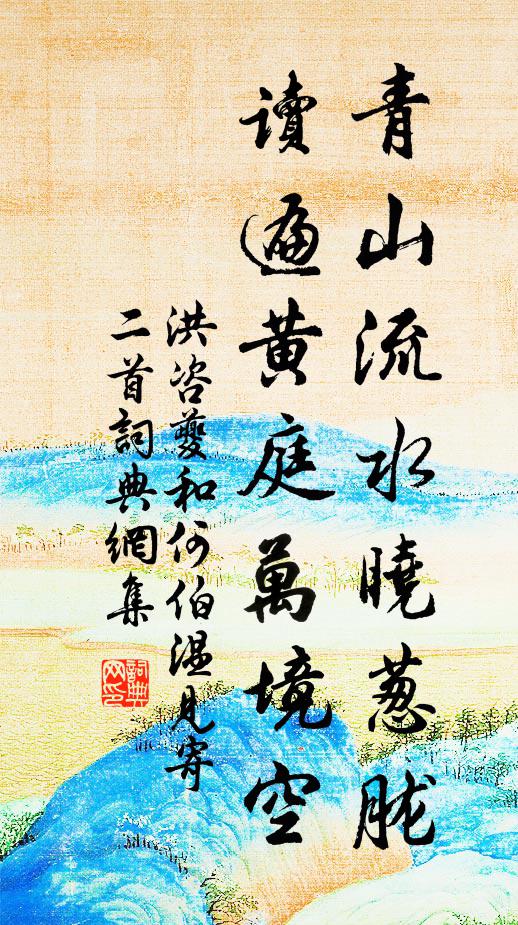 青山流水曉蔥朧
讀遍黃庭萬境空
洪咨夔和何伯溫見寄
二首詞典網集
詞典网印